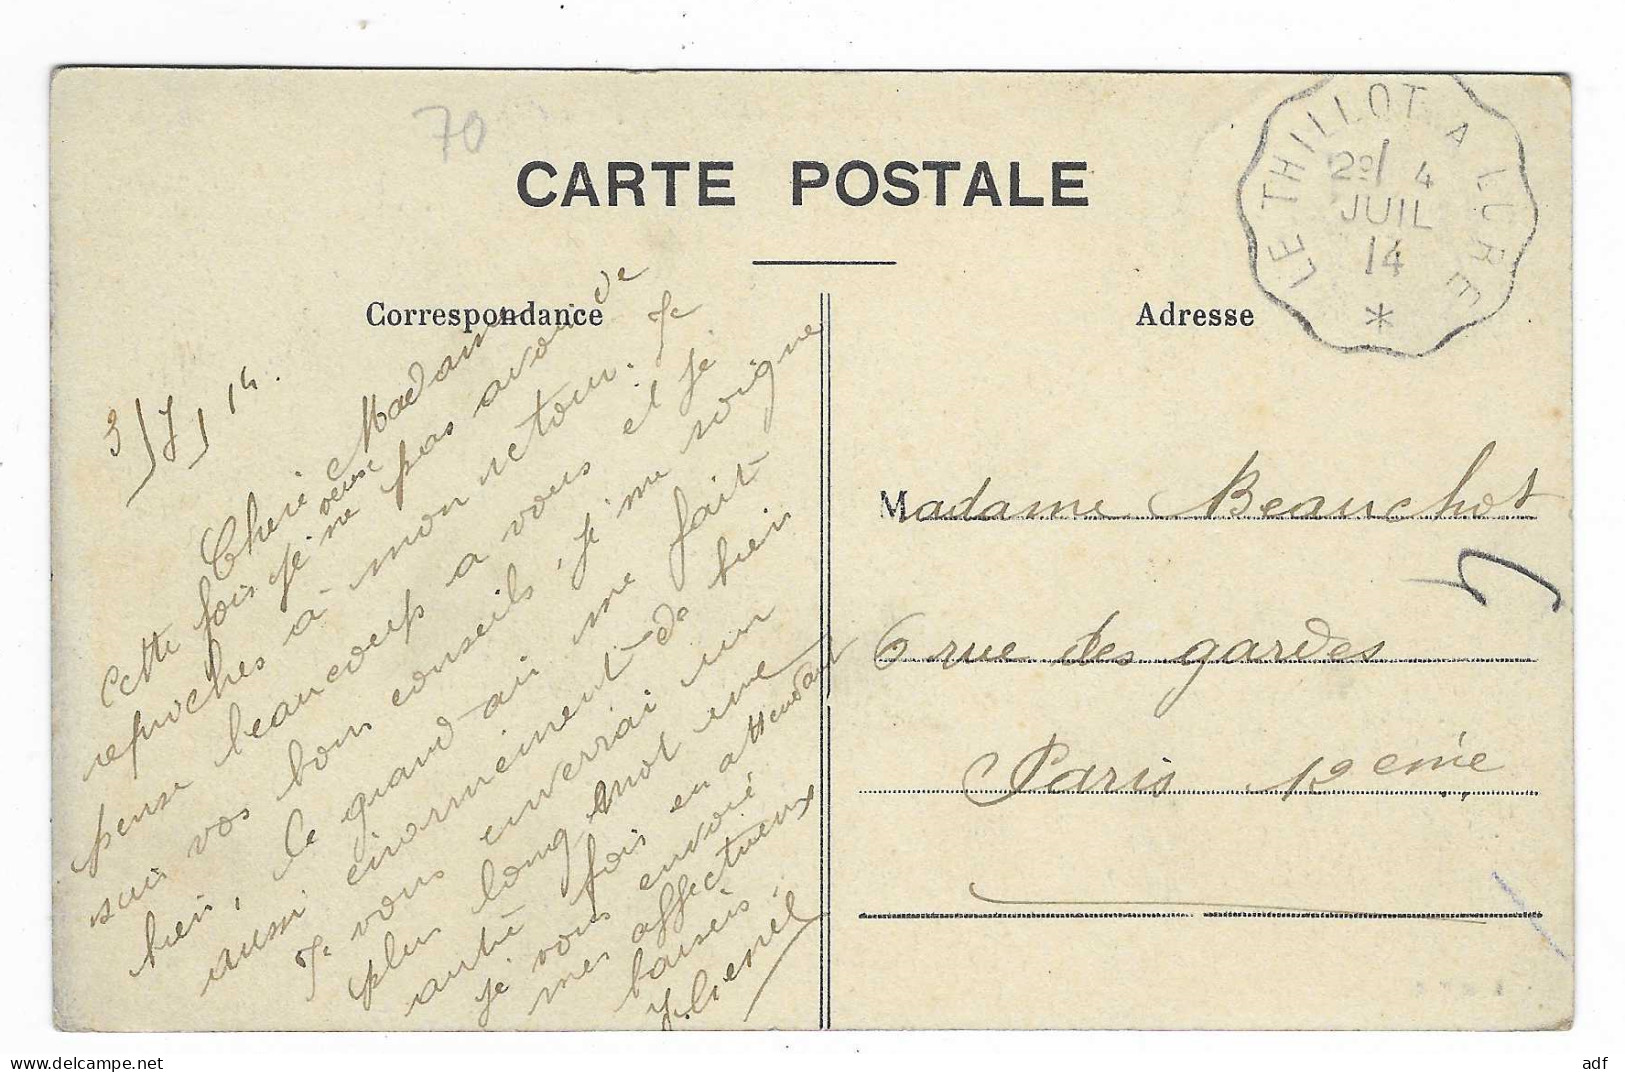 70
CARTE POSTALE
LE THILLOT A LURE
2º/ 4
JUIL
14
*
Correspondance
Adresse
3/7/14.
Cheri Madame
Cette fois je veux
ne pas avoir de
reproches à mon retour. Je
pense beaucoup a vous et je
suis vos bons conseils, je me soigne
bien, le grand air me fait
aussi énormément de bien
Je vous enverrai un
plus long mot une
autre fois en attendant
je vous envoie
mes affectueux
baisers.
Madame Beauchot
6 rue des gardes
Paris
adf